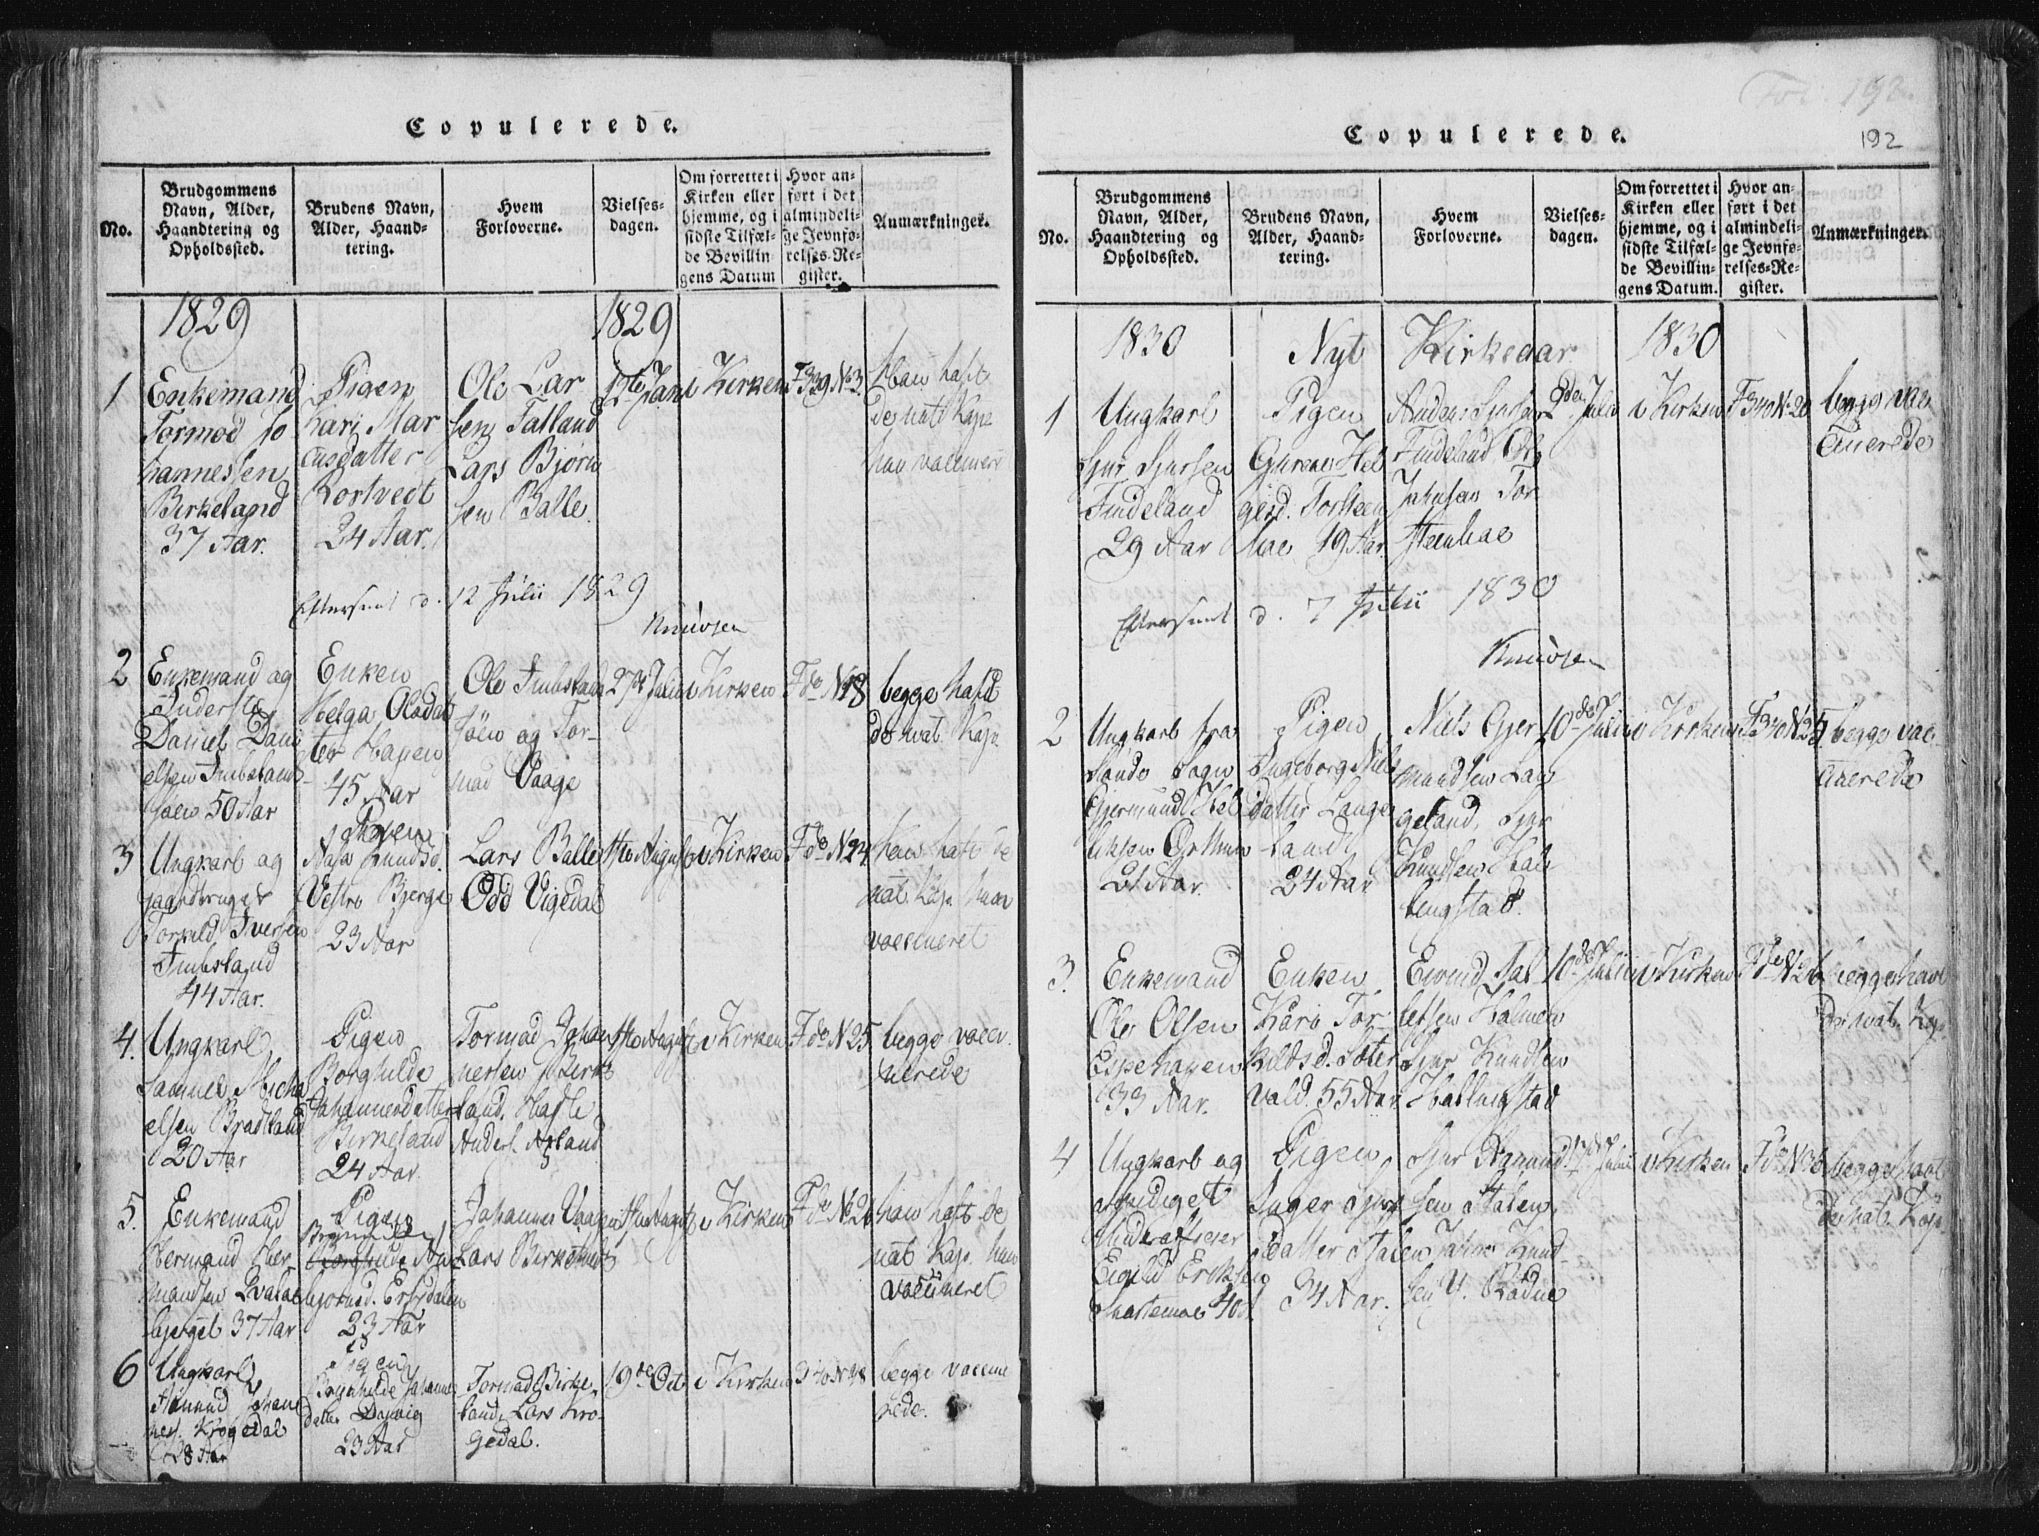 Copulerede.
No.
Brudgommens
Navn, Alder,
Haandtering og
Opholdssted.
Brudens Navn,
Alder, Haand-
tering.
Hvem
Forloverne.
Vielses-
dagen.
Om forrettet i
Kirken eller
hjemme, og i
sidste Tilfæl-
de Bevillin-
gens Datum
Hvor an-
ført i det
almindeli-
ge Jevnfø-
relses-Re-
gister.
Anmærkninger.
1829
1829
1
Enkemand
Tormod Jo
hannessen
Birkeland
37 Aar.
Pigen
Kari Mar
cusdatter
Rortvedt
24 Aar.
Ole Lar
sen Tatland
Lars Bjørn
sen Balle.
i Kirken
F 339 No 3.
Han haft
de nat. Kop.
hun vaccineret
Eftersent d. 12 Julii 1829
Knudsen
2
Enkemand og
Inderste
Daniel Dani
elsen Imbsland
søen 50 Aar
Enken
Helga Olsdat
ter Hagen
45 Aar
Ole Imbsland
søen og Tor-
mod Vaage
i Kirken
F do No 18
begge haft
de nat. Kop.
3
Ungkarl og
gaardbruger
Torkild Iversen
Imbsland
44 Aar.
Pigen
Aasa Knudsd.
Vestre Bjerge
23 Aar
Lars Balle
Odd Vigedal
1ste August
i Kirken
F do N 24
han haft de
nat. Kop. hun
vaccineret
4.
Ungkarl
Samuel Micha
elsen Bradland
20 Aar
Pigen
Borghilde
Johannesdatter
Birkeland
24 Aar.
Tormod Johan
nessen Birke
land,
Anders. Aaland
1ste August
i Kirken
F do N 25
begge vacci-
nerede
5.
Enkemand
Hermand Her
mandsen Qvalal
bjerget 37 Aar
Pigen
Borghilde As
bjørnsd. Ersdalen
23 Aar
Johannes Vaage
Lars Birkeland
i Kirken
F do No 26
han haft de
nat. Kop. hun
vaccineret
6
Ungkarl
Aamund Johan
nes. Krogedal
28 Aar
Pigen
Borghilde Johannes
datter
23 Aar
Tormod Birke-
land, Lars Kro-
gedal.
19de Oct
i Kirken
340 N 48
begge vaccine
rede.
Copulerede.
Fol. 192
192
No.
Brudgommens
Navn, Alder,
Haandtering og
Opholdssted.
Brudens Navn,
Alder, Haand-
tering.
Hvem
Forloverne.
Vielses-
dagen.
Om forrettet i
Kirken eller
hjemme, og i
sidste Tilfæl-
de Bevillin-
gens Datum.
Hvor an-
ført i det
almindeli-
ge Jevnfø-
relses-Re-
gister.
Anmærkninger.
1830 Nyt Kirkeaar 1830
1
Ungkarl
Sjur Sjursen
Findeland
29 Aar
Pigen
Hel
gesd. Torsteen
boe 19 Aar.
Anders Sjursen
Findeland
Johnsen Tor
steenboe
2den Julii
i Kirken
F 340 N 20
begge vac
cinerede
Eftersent d. 7 Julii 1830
Knudsen
2
Ungkarl fra
Sands Sogn
Gjermund Hel
liksen
21 Aar.
Pigen
Ingeborg Niels
datter Lange
land
24 Aar
Niels Gjer
mundsen Lan
geland, Sjur
Knudsen Hal
lingstad.
10de Julii
i Kirken
F 340 N 25
begge vac-
cinerede
3.
Enkemand
Ole Olsen
Espehagen
33 Aar.
Enken
Kari Tor
kildsd. Sæter
vold. 55 Aar.
Eivind Sal
lessen Holmen
Sjur Knudsen
Hallingstad
10de Julii
i Kirken
F do N 26
begge havt
de nat. Kop.
4
Ungkarl og
Eigild Eriksen
40 A.
Pigen
Inger Sjurs
datter Stalen
34 Aar.
Sjur Aamund
sen Stalen,
Johan Knud
sen Y. Rødne
i Kirken
begge havt
de nat. Kop.